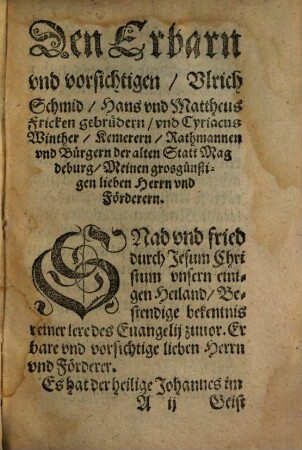 Den Erbarn
vnd vorsichtigen / Vlrich
Schmid / Hans vnd Mattheus
Fricken gebrüdern / vnd Cyriacus
Winther / Kemerern / Rathmannen
vnd Bürgern der alten Statt Mag
deburg / Meinen grosgünsti-
gen lieben Herrn vnd
Förderern.
GNad vnd fried
durch Jesum Chri
stum vnsern eini-
gen Heiland / Be-
stendige bekentnis
reiner lere des Euangelij zuuor. Er
bare vnd vorsichtige lieben Herrn
vnd Förderer.
Es hat der heilige Johannes im
A ij Geist